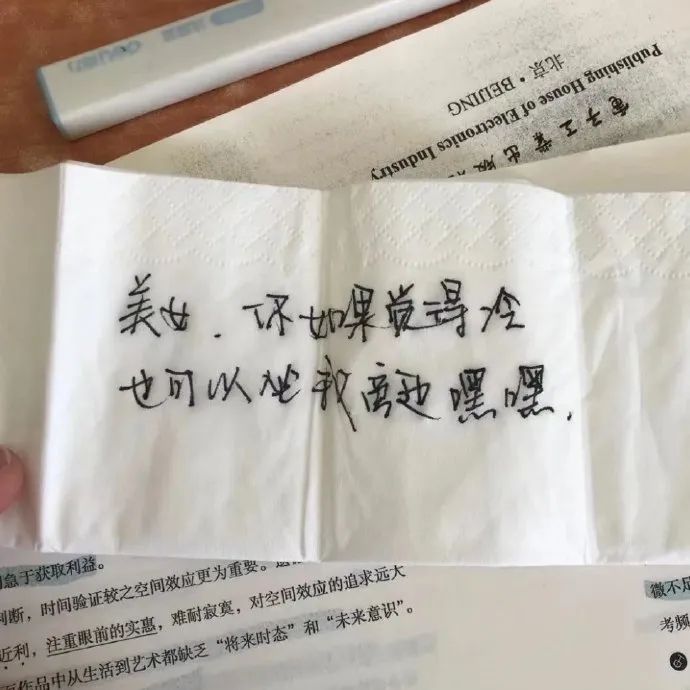 电子工业出版
Publishing House of Electronics Industry
北京·BEIJING
美女.你如果觉得冷
也可以坐我旁边嘿嘿.
急于获取利益。
判断，时间验证较之空间效应更为重要。
近利，注重眼前的实惠，难耐寂寞，对空间效应的追求远大
作品中从生活到艺术都缺乏“将来时态”和“未来意识”。
微不足
考频